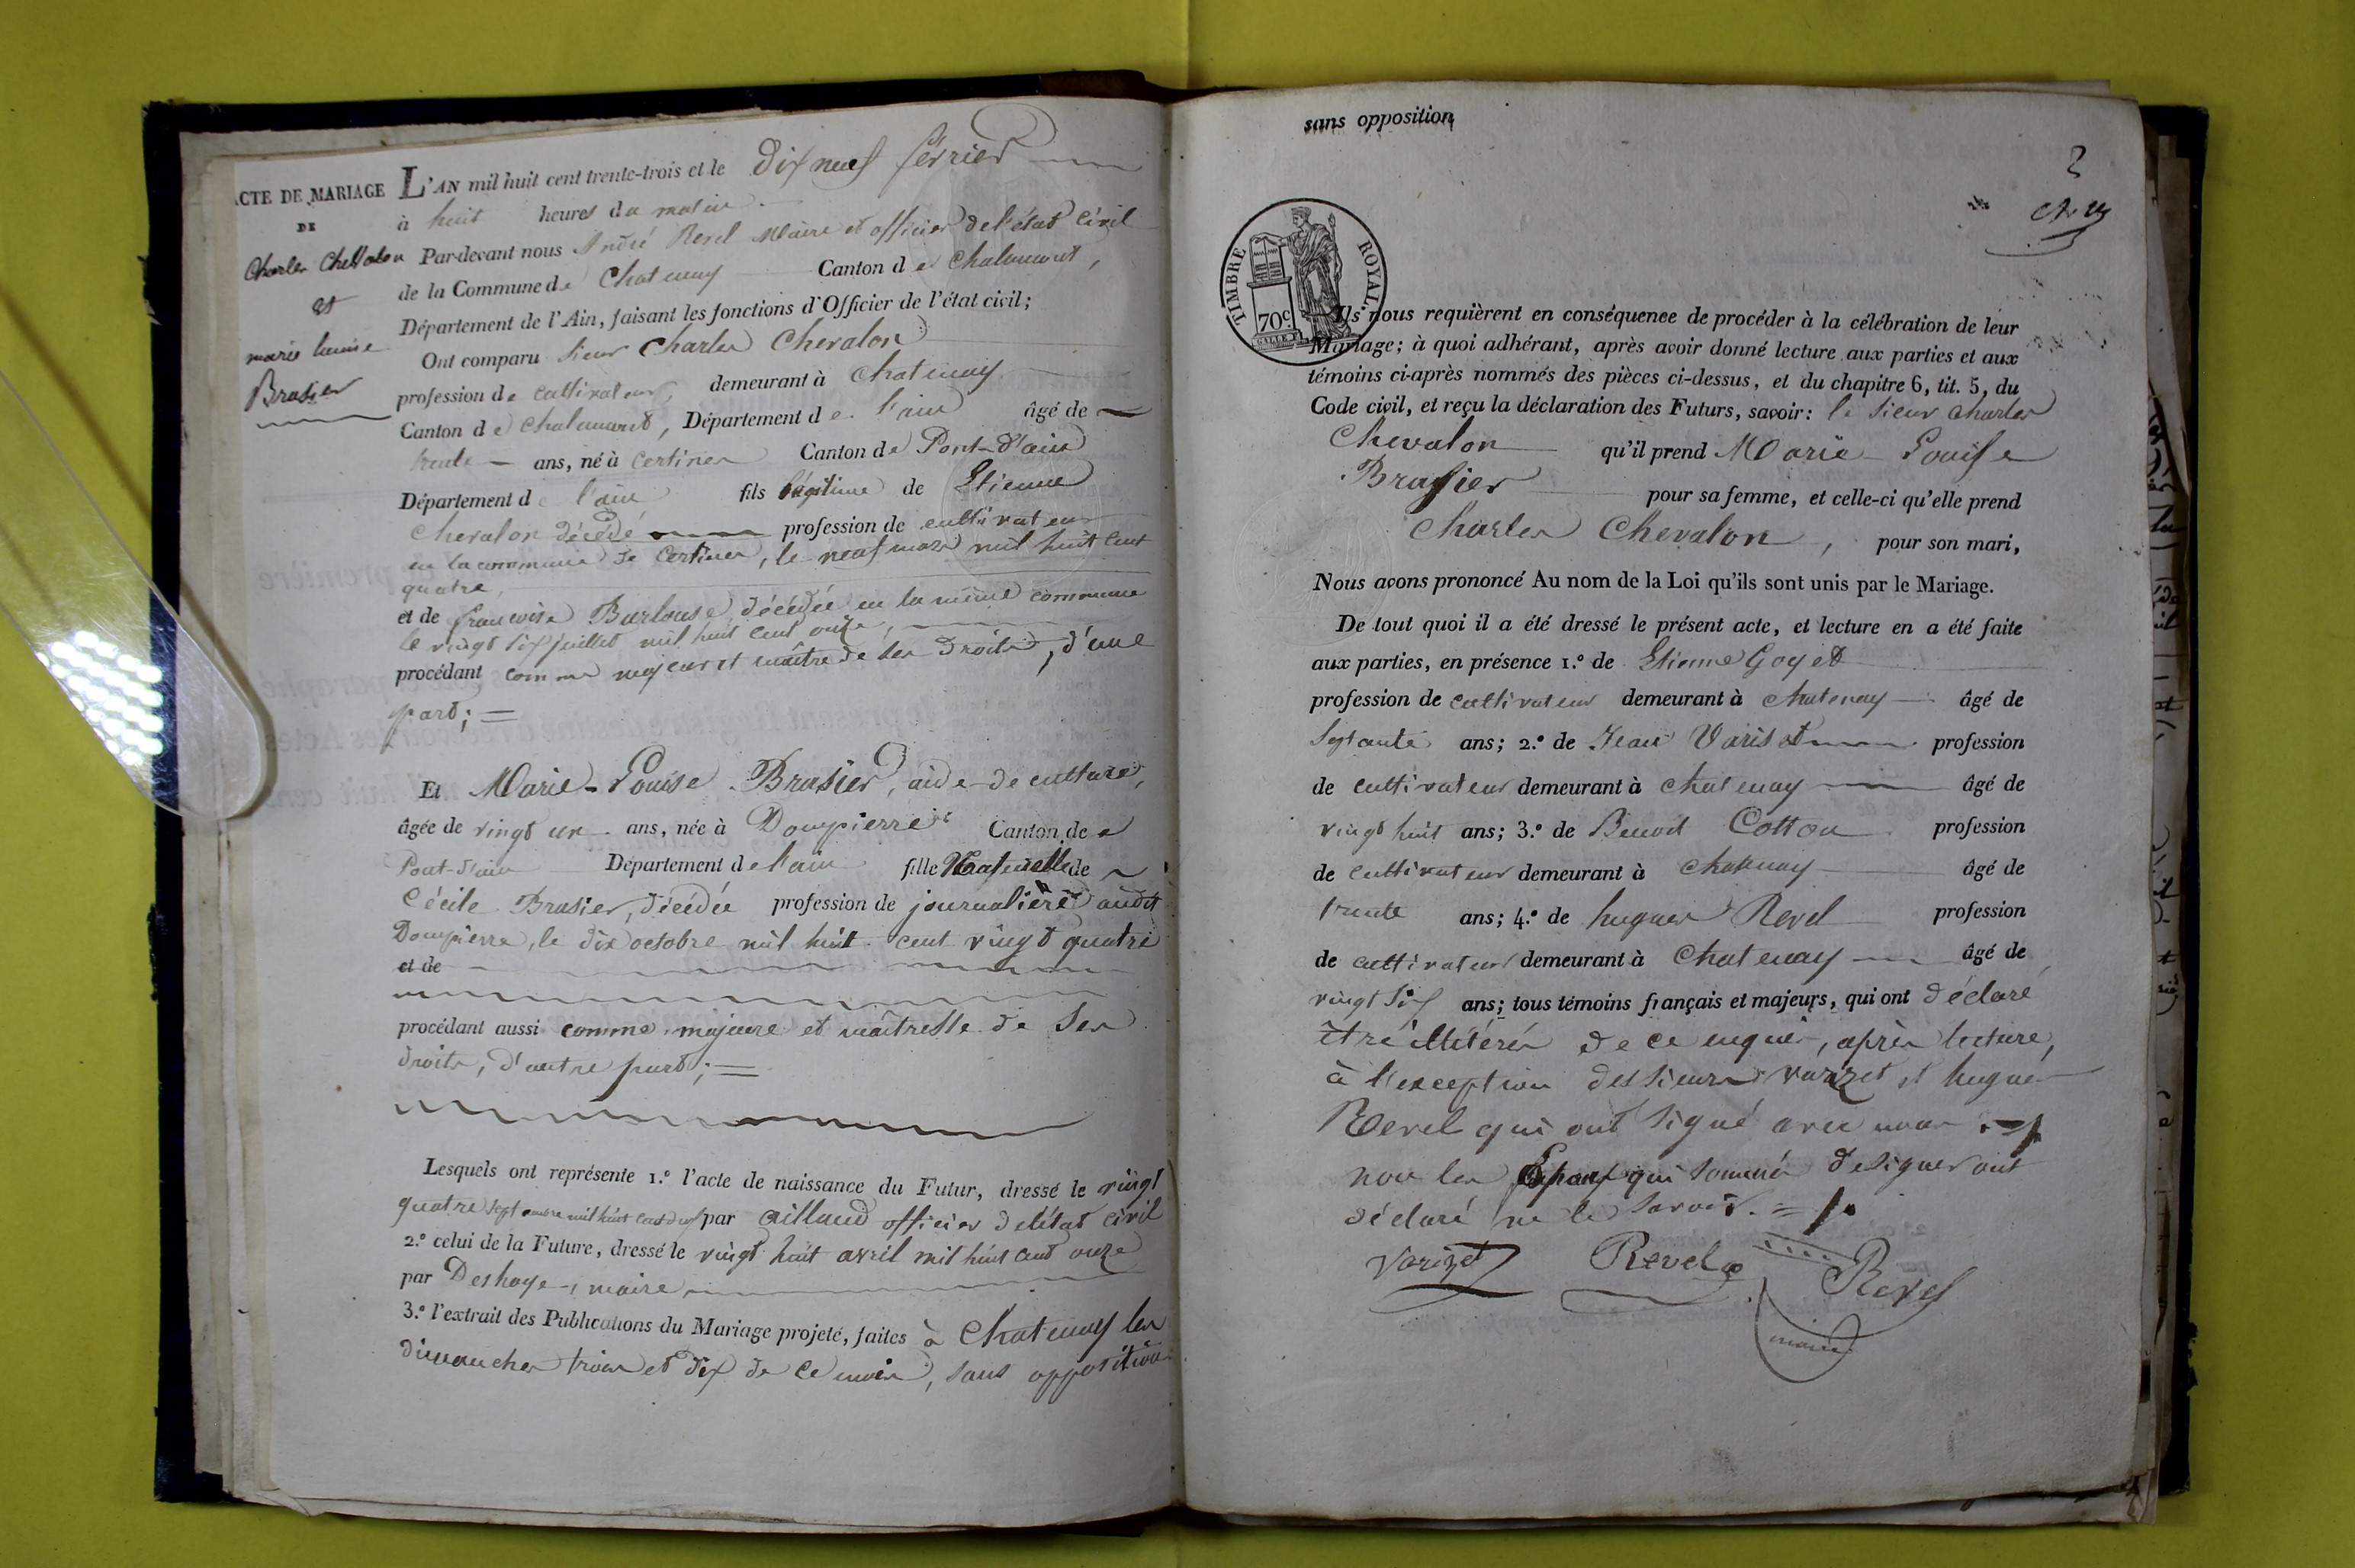 ACTE DE MARIAGE
DE
Charles Chevalon
et
marie louise
Brasier
L'AN mil huit cent trente-trois et le dix neuf février
à huit heures du matin
Par-devant nous André Revel Maire et officier de l'état civil
de la Commune de Chatenay Canton de Chalamont,
Département de l'Ain, faisant les fonctions d'Officier de l'état civil;
Ont comparu Sieur Charles Chevalon
profession de cultivateur, demeurant à Chatenay
Canton de Chalamont, Département de l'ain âgé de
trente ans, né à Certines Canton de Pont-d'ain
Département de l'ain fils légitime de Etienne
Chevalon décédé profession de cultivateur
en la commune de Certines, le neuf mars mil huit cent
quatre
et de françoise Burlouse, décédée en la même commune
le vingt six juillet mil huit cent onze,
procédant comme majeur et maître de ses droits, d'une
part;
Et Marie-Louise Brasier, aide-de culture,
âgée de vingt un ans, née à Dompierre Canton de
Pont-d'ain Département de l'ain fille Naturelle de
Cécile Brasier, décédée profession de journalière audit
Dompierre, le dix octobre mil huit cent vingt quatre
et de
procédant aussi comme majeure et maîtresse de ses
droits, d'autre part;
Lesquels ont représente 1.º l'acte de naissance du Futur, dressé le vingt
quatre septembre mil huit cent deux par aillaud officier de l'état civil
2.º celui de la Future, dressé le vingt huit avril mil huit cent onze
par Deshaye, maire
3.º l'extrait des Publications du Mariage projeté, faites à Chatenay les
dimanches trois et dix de ce mois, sans opposition
sans opposition
2
TIMBRE ROYAL
70c
Ils nous requièrent en conséquence de procéder à la célébration de leur
Mariage; à quoi adhérant, après avoir donné lecture aux parties et aux
témoins ci-après nommés des pièces ci-dessus, et du chapitre 6, tit. 5, du
Code civil, et reçu la déclaration des Futurs, savoir: le Sieur Charles
Chevalon qu'il prend Marie Louise
Brasier pour sa femme, et celle-ci qu'elle prend
Charles Chevalon, pour son mari,
Nous avons prononcé Au nom de la Loi qu'ils sont unis par le Mariage.
De tout quoi il a été dressé le présent acte, et lecture en a été faite
aux parties, en présence 1.º de Etienne Goyet
profession de cultivateur demeurant à Chatenay âgé de
Septante ans; 2.º de Jean Variset profession
de cultivateur demeurant à Chatenay âgé de
vingt huit ans; 3.º de Benoit Cotton profession
de cultivateur demeurant à Chatenay âgé de
trente ans; 4.º de hugues Revel profession
de cultivateur demeurant à Chatenay âgé de
vingt six ans; tous témoins français et majeurs, qui ont déclaré
être illitérés de ce enquis, après lecture,
à l'exception des Sieurs Varizet et hugues
Revel qui ont signé avec nous
non les Epoux qui sommés de signer ont
déclaré ne le savoir.
Varizet Revel Revel
maire